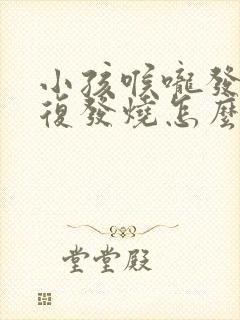 小孩喉嚨發
復發燒怎麼
堂堂殿